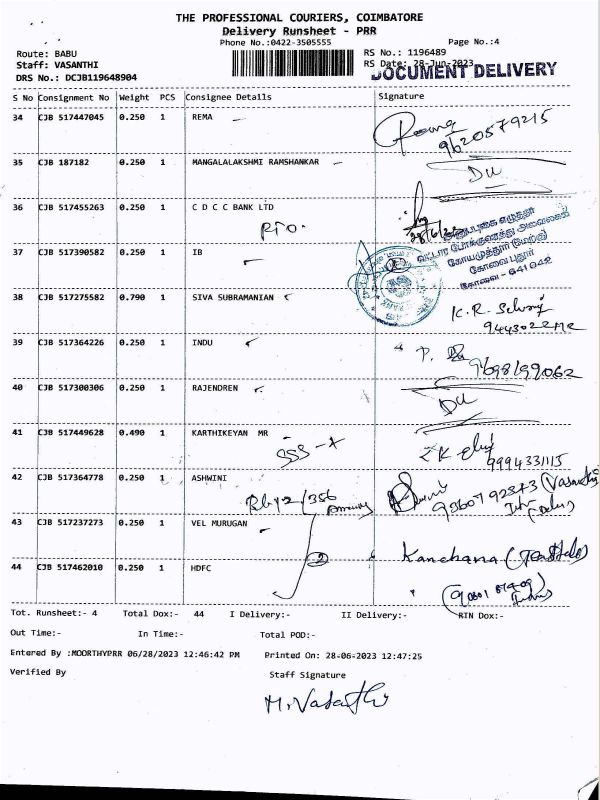 THE PROFESSIONAL COURIERS, COIMBATORE
Delivery Runsheet - PRR
Phone No.:0422-3505555
Page No.:4
Route: BABU
RS No.: 1196489
Staff: VASANTHI
RS Date: 28-Jun-2023
DOCUMENT DELIVERY
DRS No.: DCJB119648904
S No Consignment No Weight PCS Consignee Details Signature
34 CJB 517447045 0.250 1 REMA
9620579215
35 CJB 187182 0.250 1 MANGALALAKSHMI RAMSHANKAR
DU
36 CJB 517455263 0.250 1 C D C C BANK LTD
RTO.
37 CJB 517390582 0.250 1 IB
கோவை - 641042
38 CJB 517275582 0.790 1 SIVA SUBRAMANIAN
K.R.
39 CJB 517364226 0.250 1 INDU
P.
9698199062
40 CJB 517300306 0.250 1 RAJENDREN
DU
41 CJB 517449628 0.490 1 KARTHIKEYAN MR
9994331115
42 CJB 517364778 0.250 1 ASHWINI
(Vasanthi
43 CJB 517237273 0.250 1 VEL MURUGAN
2
Kanchana
44 CJB 517462010 0.250 1 HDFC
Tot. Runsheet:- 4 Total Dox:- 44 I Delivery:- II Delivery:- RTN Dox:-
Out Time:- In Time:- Total POD:-
Entered By :MOORTHYPRR 06/28/2023 12:46:42 PM Printed On: 28-06-2023 12:47:25
Verified By Staff Signature
M.Vasanthi